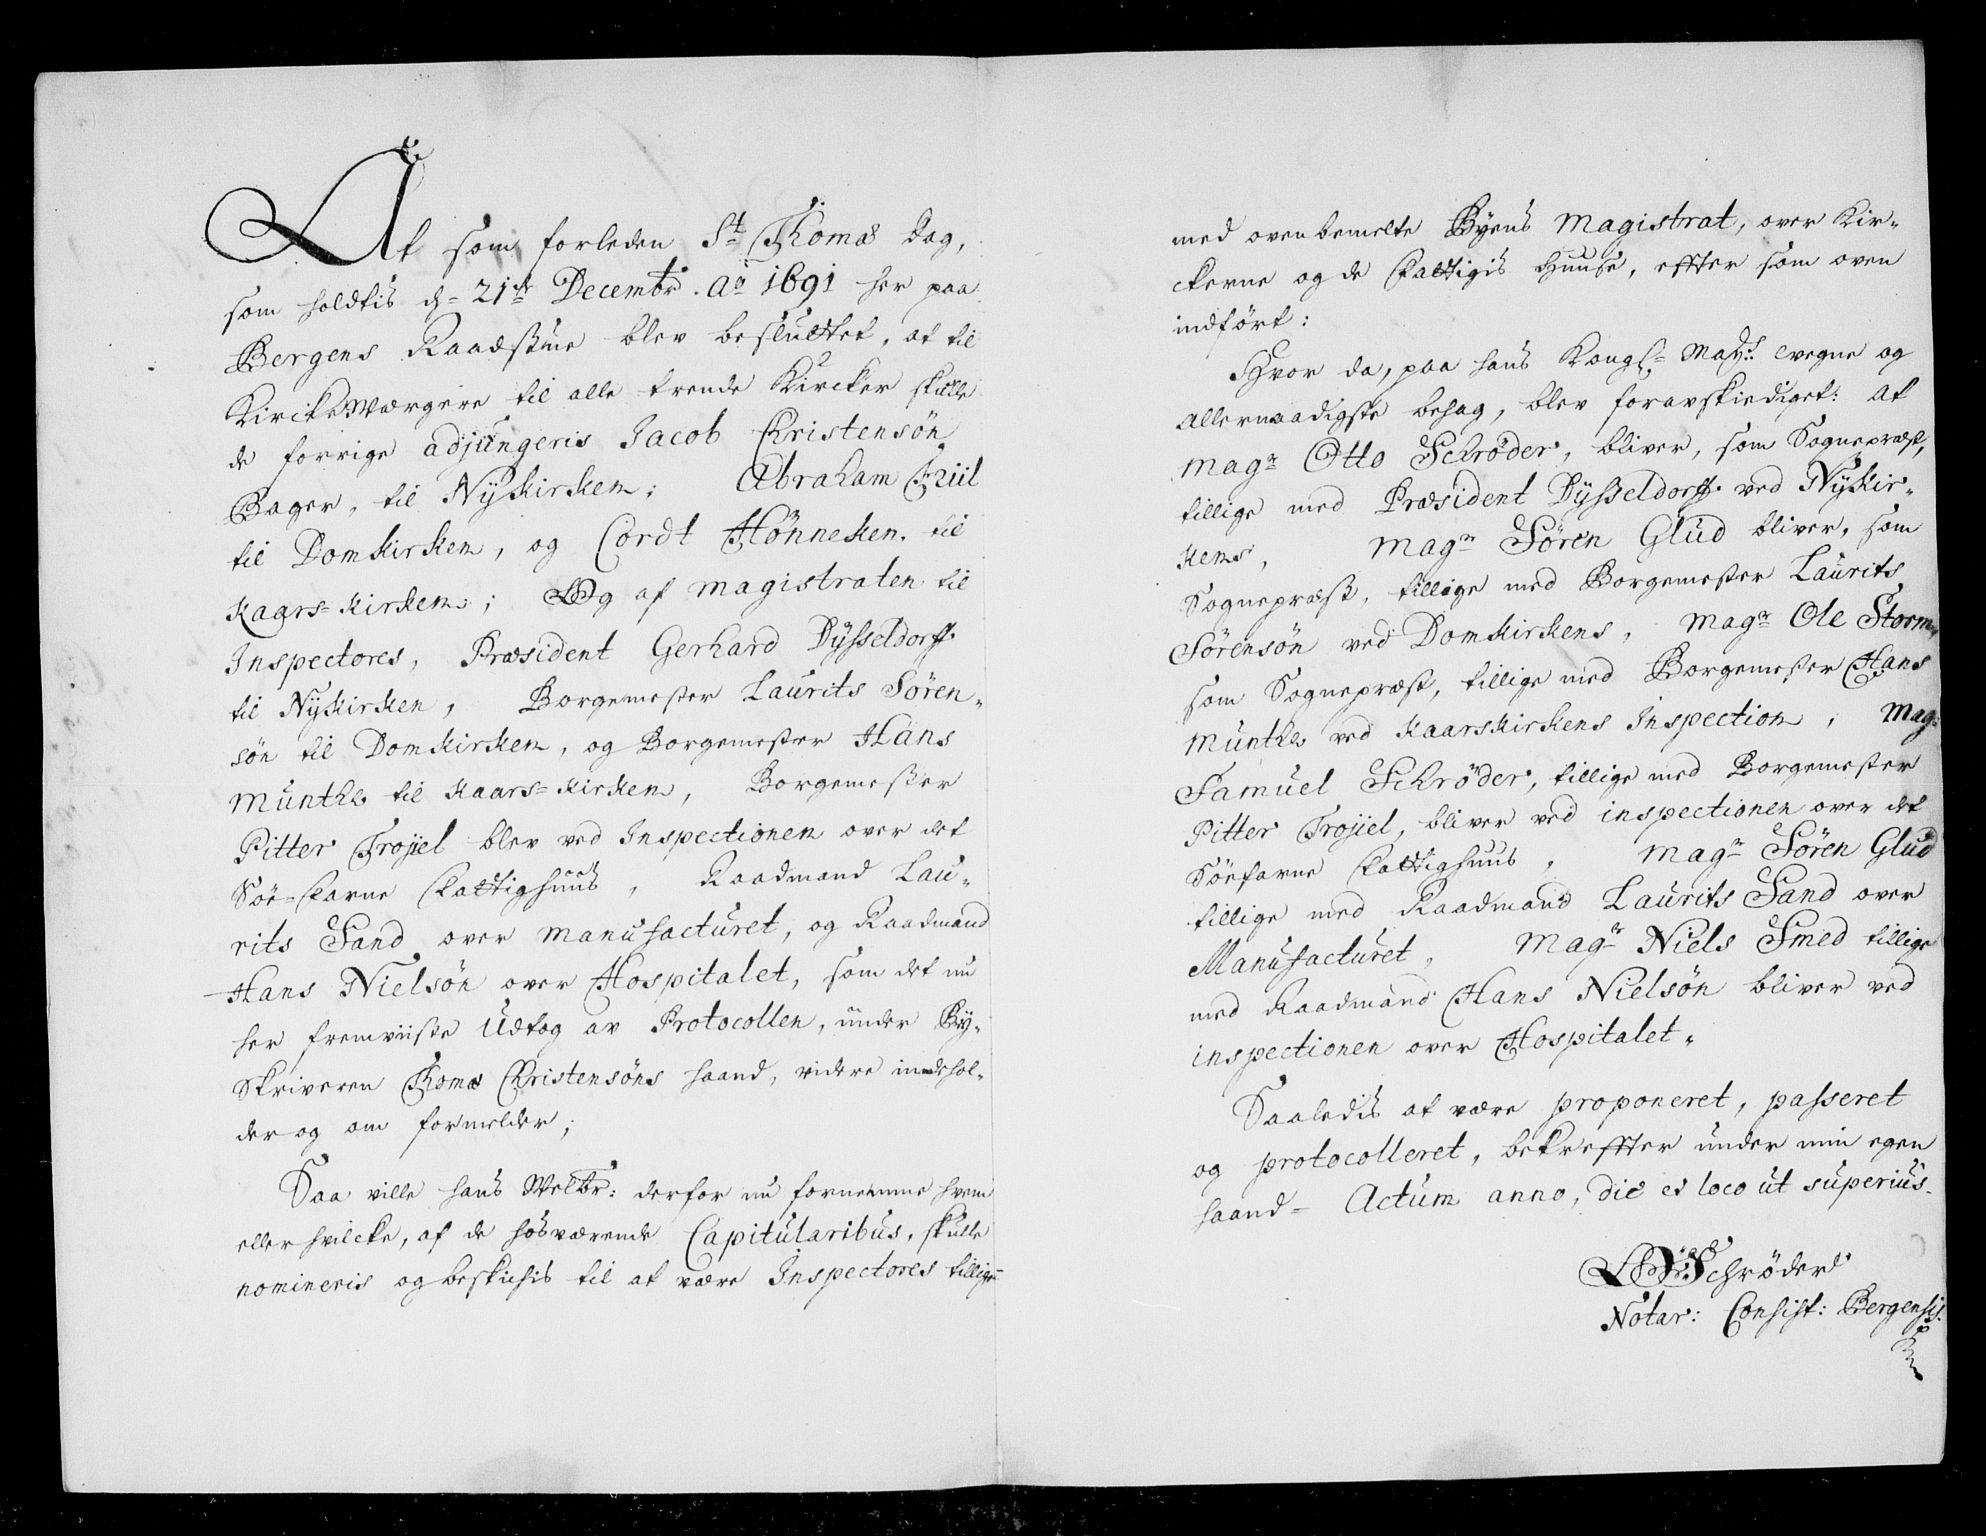 At som forleden St Thomæ Dag,
som holdtis d= 21de Decembr. Ao 1691 her paa
Bergens Raadstue blev besluttet, at til
KirckeWærgere til alle trende Kircker skulle
de forrige adjungeris Jacob Christensön
Bager, til Nÿkirken; Abraham Thiil
til Domkirken, og Cordt Hönneken til
Kaars=Kirken; Og af Magistraten til
Inspectores, Præsident Gerhard Dÿsseldorff
til Nÿkirken, Borgemester Laurits Sören-
sön til Domkirken, og Borgemester Hans
Münthe til Kaars=Kirken, Borgemester
Pitter Trojel blev ved Inspectionen over det
Söe=farne Fattighuus, Raadmand Lau-
rits Sand over Manufacturet, og Raadmand
Hans Nielsön over Hospitalet, som det nu
her fremviiste Udtog av Protocollen, under By-
Skriveren Thomæ Christensöns haand, videre indehol-
der og om formelder;
Saa ville hans Welbr: derfor nu fornemme hvem
eller hvilcke, af de hosværende Capitularibus, skulle
nomineris og beskichis til at være Inspectores tillige
med ovenbemelte Byens Magistrat, over Kir-
ckerne og de Fattigis Huuse, effter som oven
indfört:
Hvor da, paa hans Kongl= Mayts. vegne og
allernaadigste behag, blev foravskiediget: At
Magr Otto Schröder, bliver, som Sognepræst,
tillige med Præsident Dÿsseldorff ved Nÿkir-
kens, Magr Sören Glud bliver, som
Sognepræst, tillige med Borgemester Laurits
Sörensön ved Domkirkens, Magr Ole Storm
som Sognepræst, tillige med Borgemester Hans
Münthe ved Kaarskirkens Inspection, Mag:
Samuel Schröder, tillige med Borgemester
Pitter Trojel, bliver ved inspectionen over det
Söefarne Fattighuus, Magr Sören Glud
tillige med Raadmand Laurits Sand over
Manufacturet, Magr Niels Smed tillige
med Raadmand Hans Nielsön bliver ved
inspectionen over Hospitalet.
Saaledis at være proponeret, passeret
og protocolleret, bekreffter under min egen
haand= Actum anno, die et loco ut superius.
Schröder
Notar: Consist: Bergensis.